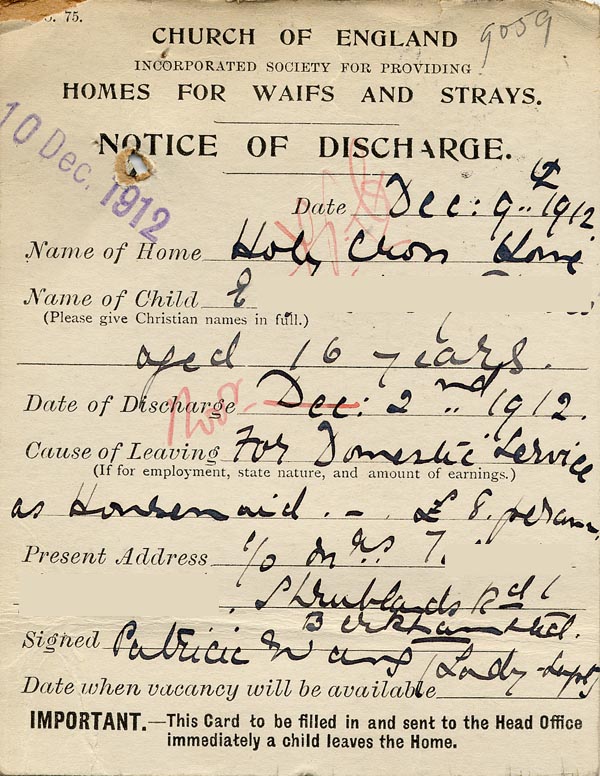 75.
9059
CHURCH OF ENGLAND
INCORPORATED SOCIETY FOR PROVIDING
HOMES FOR WAIFS AND STRAYS.
NOTICE OF DISCHARGE.
10 Dec. 1912
Date Dec: 9th 1912
Name of Home Holy Cross Home
Name of Child E
(Please give Christian names in full.)
aged 16 years.
Date of Discharge Dec: 2nd 1912.
Nov.
Cause of Leaving For Domestic Service
(If for employment, state nature, and amount of earnings.)
as Housemaid. - £8. per ann.
Present Address c/o Mrs T.
, Shrublands Rd
Berkhamsted.
Signed Patricia (Lady-Supt)
Date when vacancy will be available
IMPORTANT.—This Card to be filled in and sent to the Head Office
immediately a child leaves the Home.